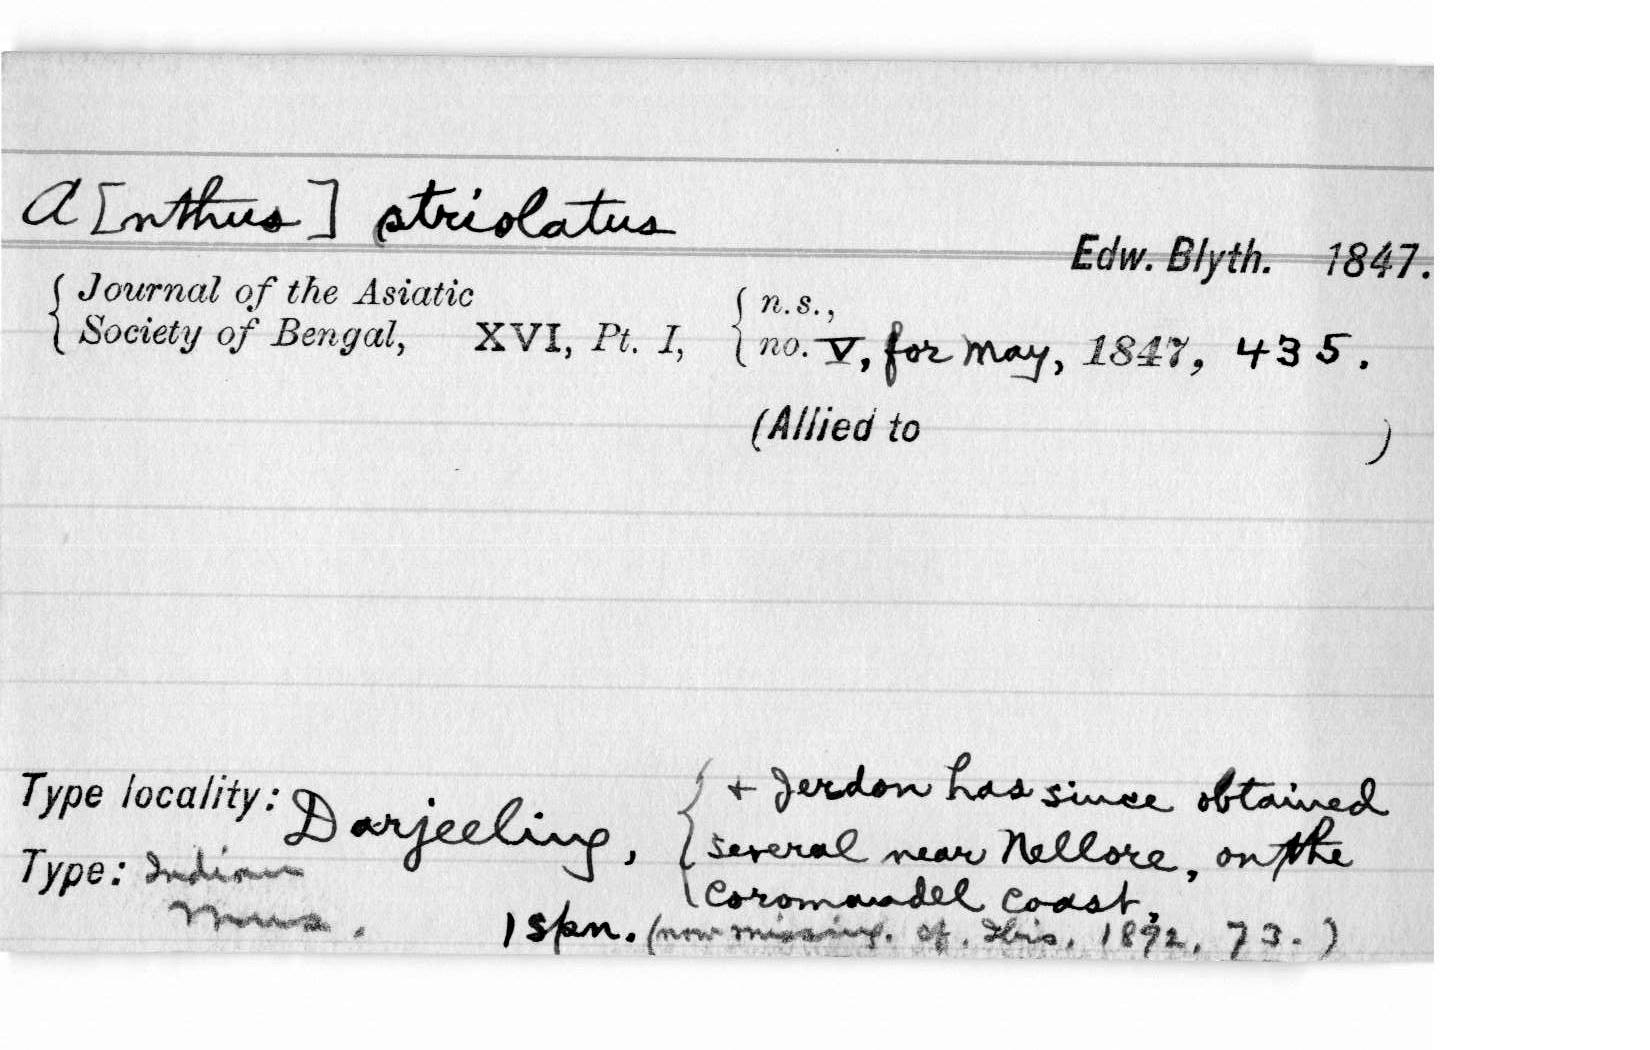 A[nthus] striolatus
Edw. Blyth. 1847.
Journal of the Asiatic
Society of Bengal, XVI, Pt. I,
n.s.,
no. V, for May, 1847, 435.
(Allied to )
Type locality: Darjeeling,
+ Jerdon has since obtained
several near Nellore, on the
Coromandel Coast,
Type: Indian
Mus.
1 spn. (now missing. cf. Ibis, 1892, 73.)